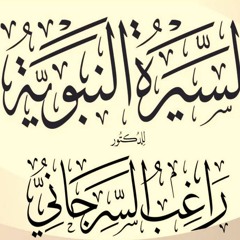 السِّيرَةُ النَّبَوِيَّة
للدُّكتُور
رَاغِب السِّرجَانِيُّ